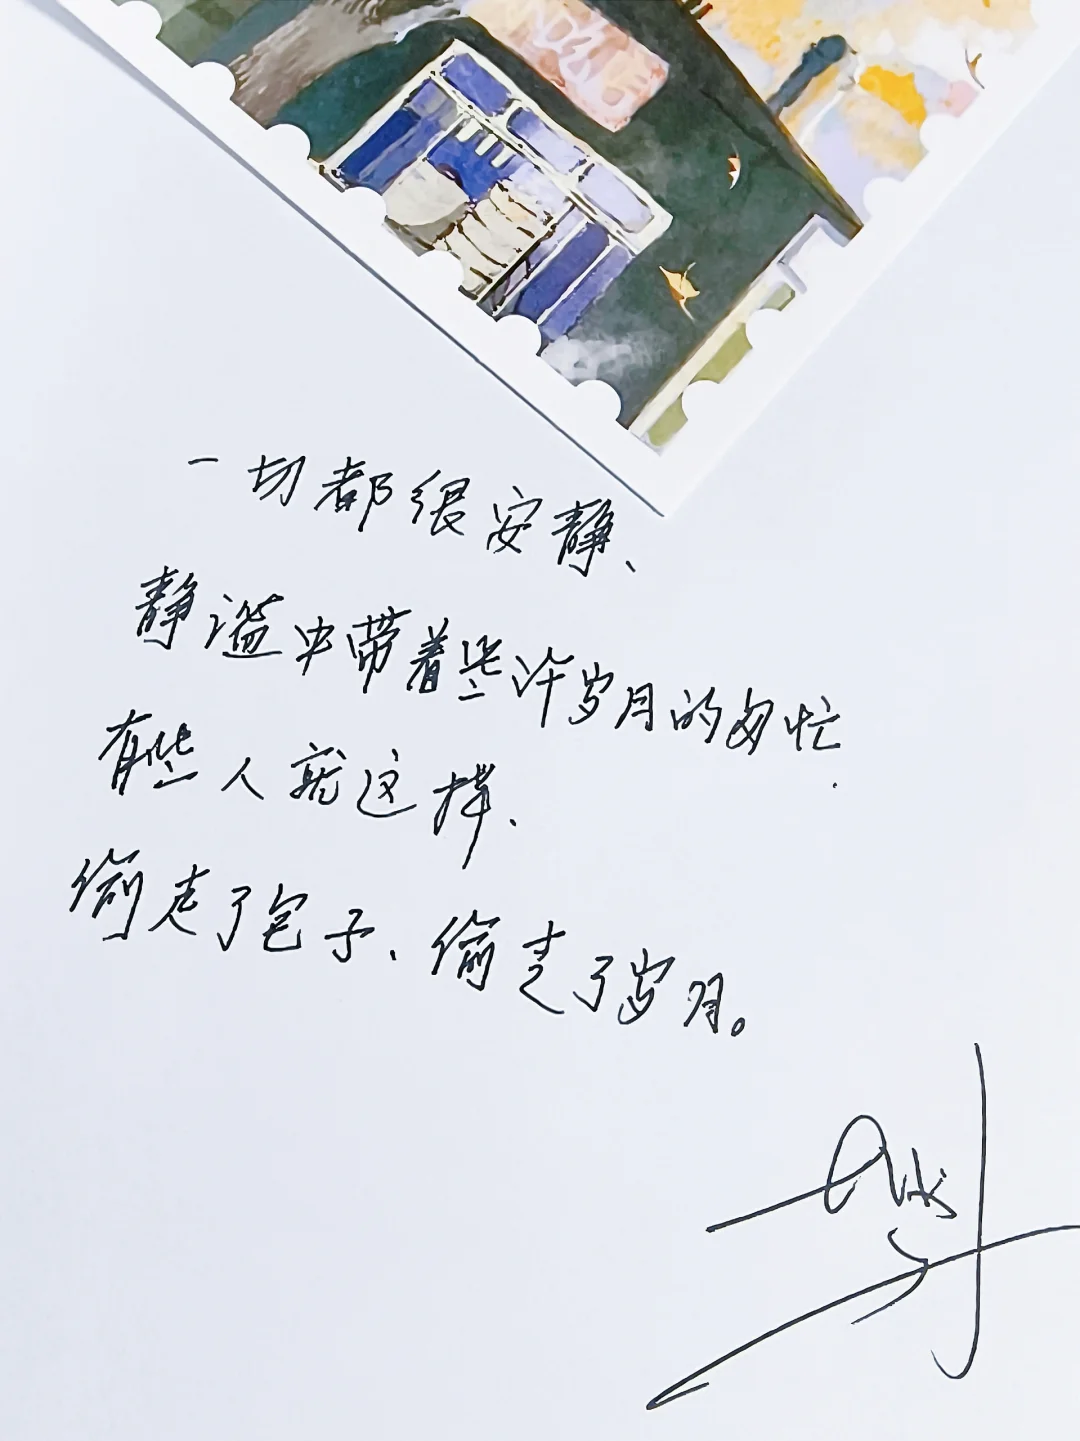 一切都很安静、
静谧中带着些许岁月的匆忙.
有些人就这样、
偷走了包子、偷走了岁月。